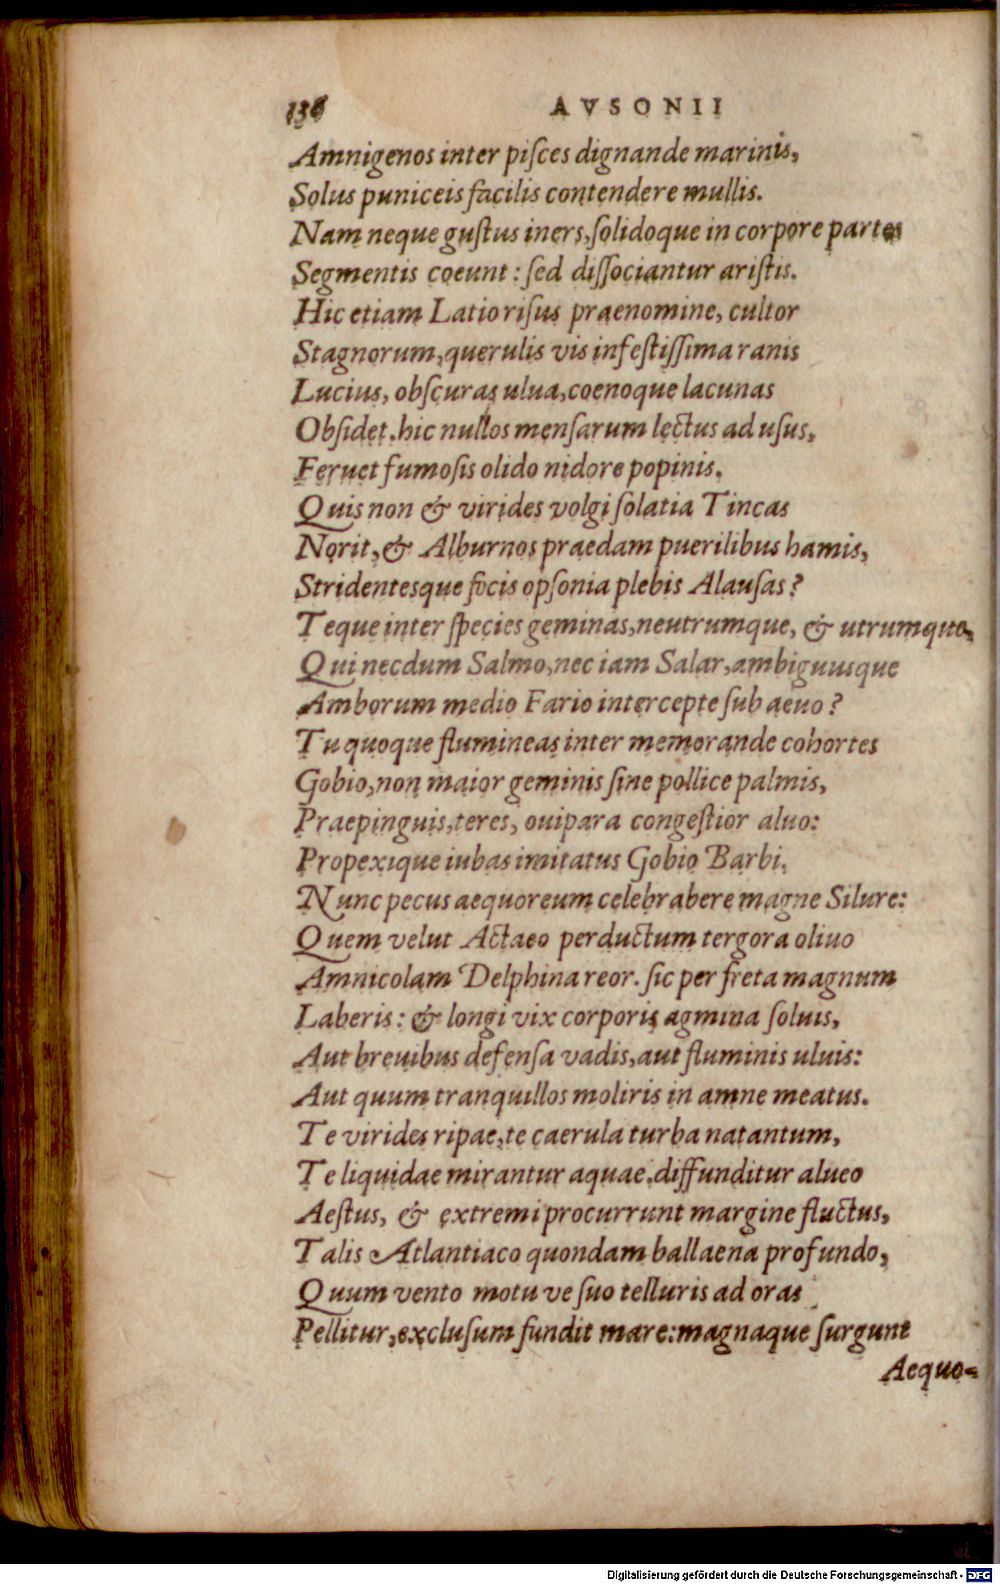 136 AVSONII
Amnigenos inter piſces dignande marinis,
Solus puniceis facilis contendere mullis.
Nam neque guſtus iners, ſolidoque in corpore partes
Segmentis coeunt: ſed diſſociantur ariſtis.
Hic etiam Latio riſus praenomine, cultor
Stagnorum, querulis vis infeſtiſſima ranis
Lucius, obſcuras ulua, coenoque lacunas
Obſidet. hic nullos menſarum lectus ad uſus,
Feruet fumoſis olido nidore popinis.
Quis non & virides volgi ſolatia Tincas
Norit, & Alburnos praedam puerilibus hamis,
Stridentesque focis opſonia plebis Alauſas?
Teque inter ſpecies geminas, neutrumque, & utrumque,
Qui necdum Salmo, nec iam Salar, ambiguusque
Amborum medio Fario intercepte ſub aeuo?
Tu quoque flumineas inter memorande cohortes
Gobio, non maior geminis ſine pollice palmis,
Praepinguis, teres, ouipara congeſtior aluo:
Propexique iubas imitatus Gobio Barbi.
Nunc pecus aequoreum celebrabere magne Silure:
Quem velut Actaeo perductum tergora oliuo
Amnicolam Delphina reor. ſic per freta magnum
Laberis: & longi vix corporis agmina ſoluis,
Aut breuibus defenſa vadis, aut fluminis uluis:
Aut quum tranquillos moliris in amne meatus.
Te virides ripae, te caerula turba natantum,
Te liquidae mirantur aquae. diffunditur alueo
Aeſtus, & extremi procurrunt margine fluctus,
Talis Atlantiaco quondam ballaena profundo,
Quum vento motu ve ſuo telluris ad oras
Pellitur, excluſum fundit mare: magnaque ſurgunt
Aequo-
Digitalisierung gefördert durch die Deutsche Forschungsgemeinschaft - DFG